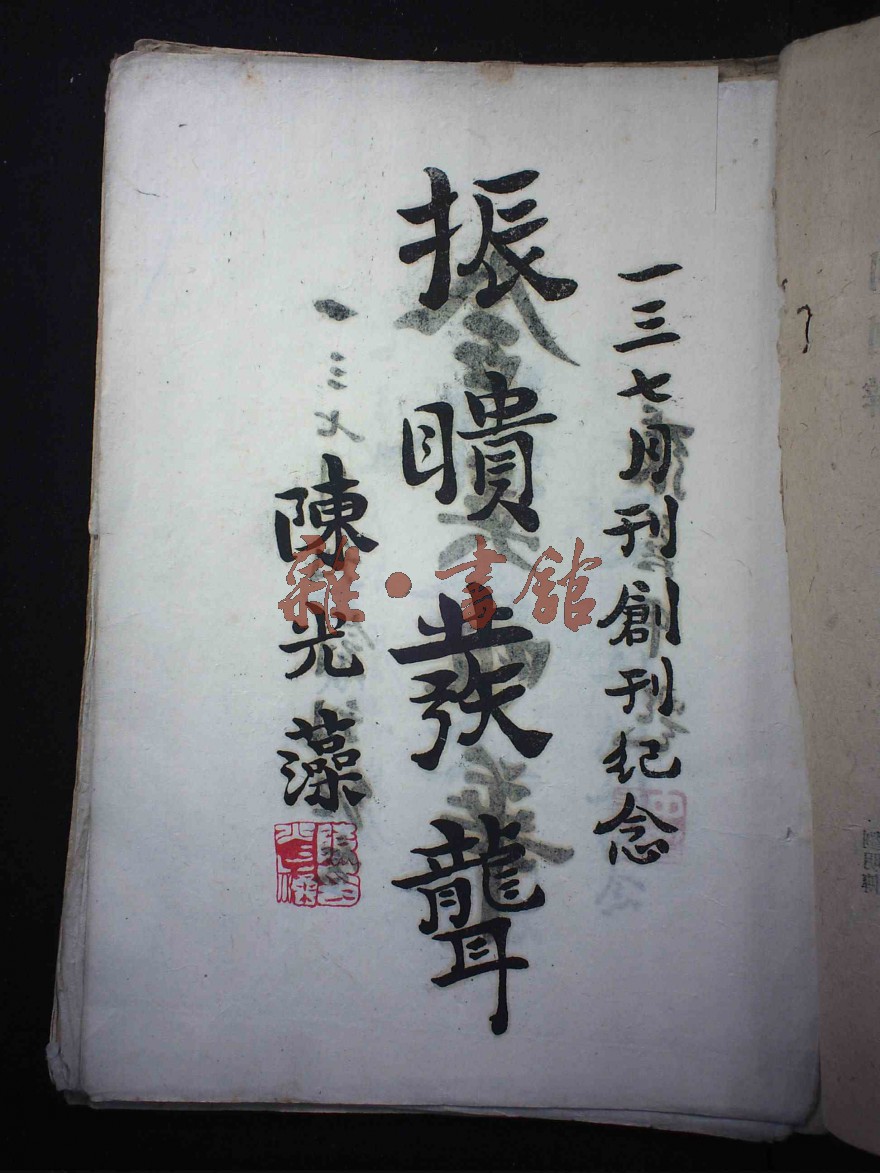 一三七月刊創刊紀念
振瞶發聾
陳光藻
雜·書館